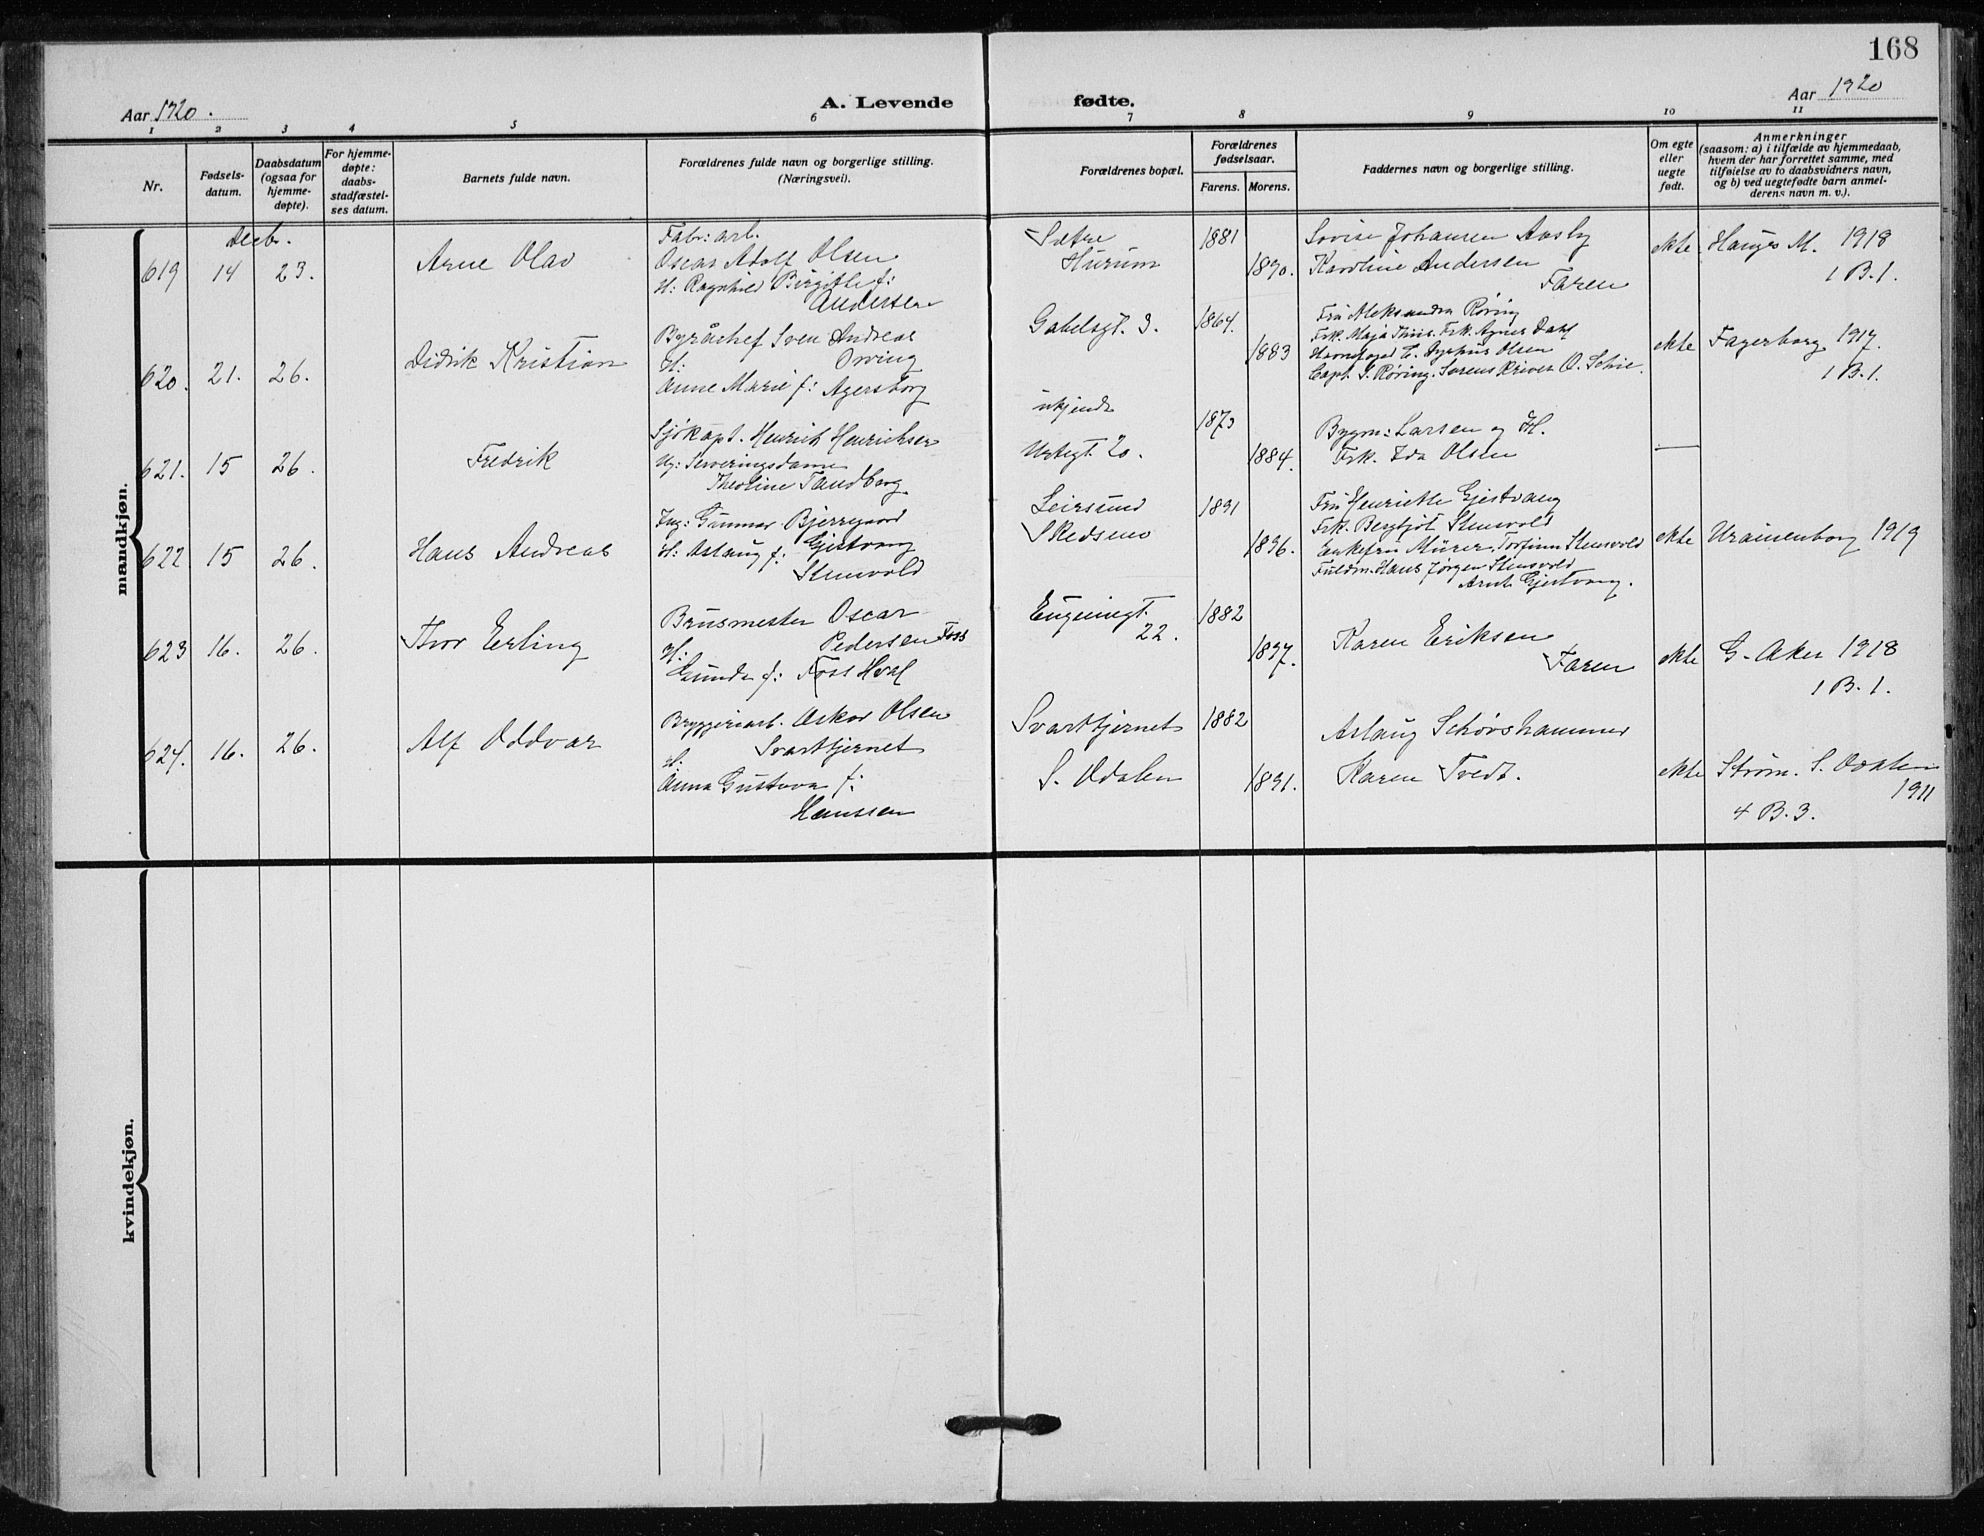 168
Aar 1920.
A. Levende fødte.
Aar 1920
1 2 3 4 5 6 7 8 9 10 11
Nr.
Fødsels-
datum.
Daabsdatum
(ogsaa for
hjemme-
døpte).
For hjemme-
døpte:
daabs-
stadfæstel-
ses datum.
Barnets fulde navn.
Forældrenes fulde navn og borgerlige stilling.
(Næringsvei).
Forældrenes bopæl.
Forældrenes
fødselsaar.
Farens. Morens.
Faddernes navn og borgerlige stilling.
Om egte
eller
uegte
født.
Anmerkninger
(saasom: a) i tilfælde av hjemmedaab,
hvem der har forrettet samme, med
tilføielse av to daabsvidners navn,
og b) ved uegtefødte barn anmel-
derens navn m. v.).
mandkjøn.
Decb.
619 14 23. Arne Olav
Fabr: arb.
Oscar Adolf Olsen
H: Ragnhild Birgitte f:
Andersen
Sætre
Hurum
1881
1890.
Lovise Johansen Aasby
Karoline Andersen
Faren
ekte
Hauges M. 1918
1 B. 1.
620. 21. 26. Didrik Kristian
Byråchef Sven Andreas
Orving
H:
Anne Marie f: Agersborg
Gabelsgt. 3.
1864.
1883
Fru Aleksandra Røring
Frk. Maja Thiis. Frk. Agnes Dahl
Havnefoged C. Olsen
Capt. S. Røring. Sorenskriver O. Schie.
ekte
Fagerborg 1917.
1 B. 1.
621. 15 26. Fredrik
Sjökapt. Henrik Henrichsen
Ug: Serveringsdame
Theoline Sandberg.
ukjendt
Urtegt. 20.
1873
1884.
Bygm: Larsen og H.
Frk. Ida Olsen
—
622 15 26. Hans Andreas
Ing: Gunnar Bjerregaard
Gjestvang
H: Aslaug f:
Stensvold
Leirsund
Skedsmo
1891
1896.
Fru Henriette Gjestvang
Frk. Bergljot Stensvold
Enkefru Mürer. Torfinn Stensvold
Fuldm. Hans Jørgen Stensvold
Arnt Gjestvang.
ekte
Uranienborg 1919
623 16. 26. Thor Erling
Brusmester Oscar
Pedersen Foss
H:
Gunda f: Foss Hval
Eugeniegt.
22.
1882
1897.
Karen Eriksen
Faren
ekte
G. Aker 1918
1 B. 1.
624. 16. 26. Alf Oddvar
Bryggeriarb. Oskar Olsen
Svarttjernet
H:
Anna Gustava f:
Hanssen
Svarttjernet
S. Odalen
1882
1891.
Aslaug Schøvshammer
Karen Tvedt.
ekte
Strøm. S. Odalen
1911
4 B. 3.
kvindekjøn.